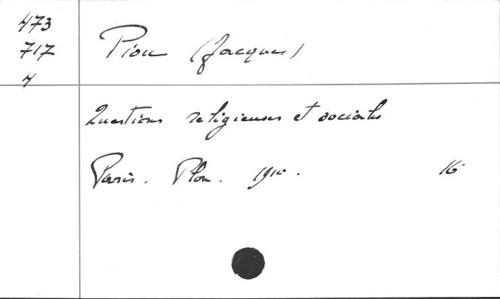 473
717
4
Piou (Jacques)
Questions religieuses et sociales
Paris. Plon. 1910. 16